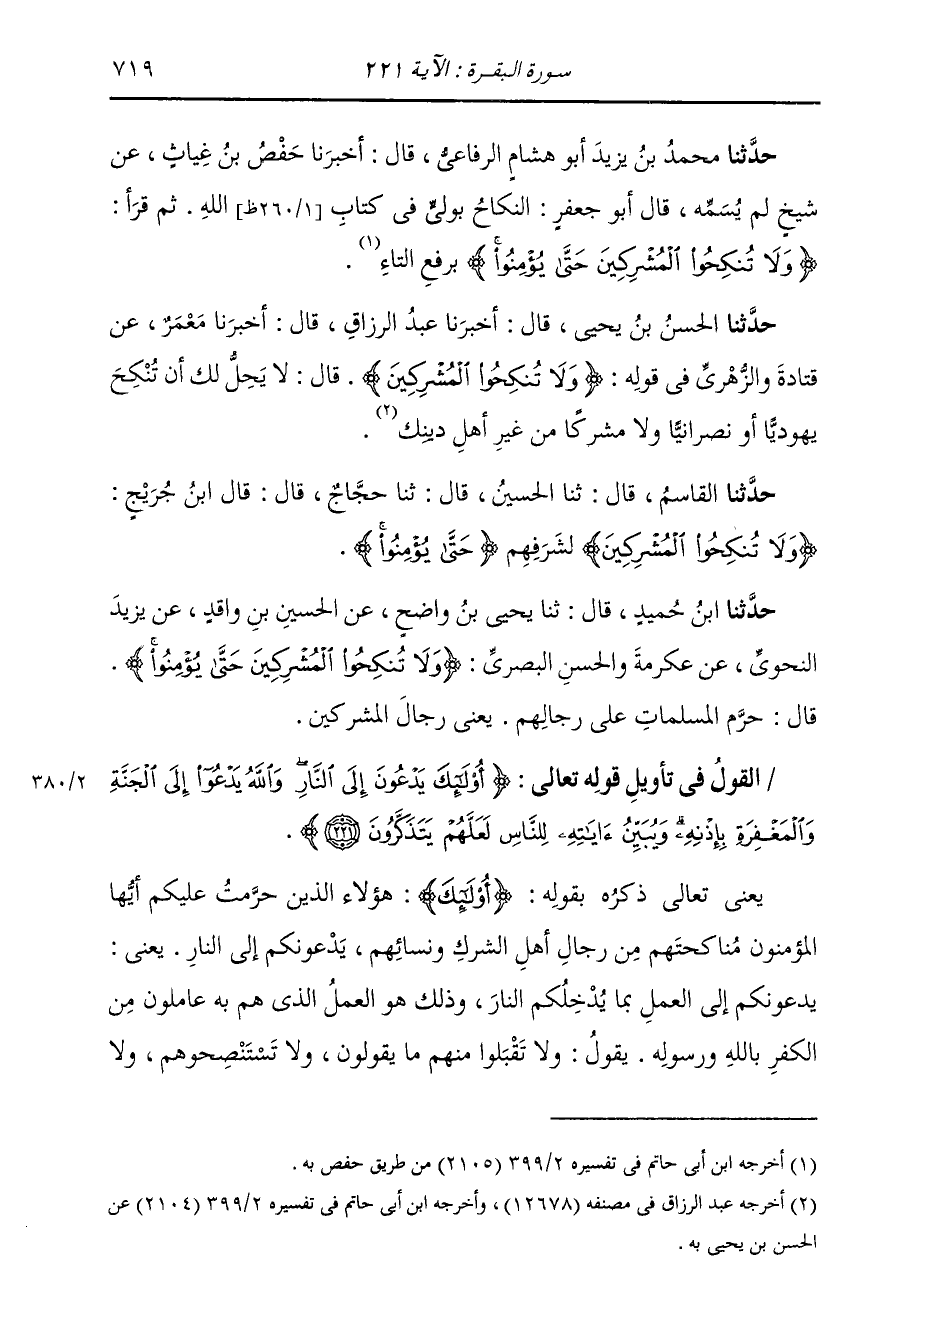 سورة البقرة : الآية ٢٢١ ٧١٩
حدَّثنا محمدُ بنُ يزيدَ أبو هشامٍ الرفاعىُّ ، قال : أخبرَنا حَفْصُ بنُ غِياثٍ ، عن
شيخٍ لم يُسَمِّه ، قال أبو جعفرٍ : النكاحُ بولىٍّ فى كتابِ [٢٦٠/١ظ] اللهِ . ثم قرَأ :
﴿ وَلَا تُنكِحُوا۟ ٱلْمُشْرِكِينَ حَتَّىٰ يُؤْمِنُوا۟ۚ ﴾ برفعِ التاءِ(١) .
حدَّثنا الحسنُ بنُ يحيى ، قال : أخبرَنا عبدُ الرزاقِ ، قال : أخبرَنا مَعْمَرٌ ، عن
قتادةَ والزُّهْرىِّ فى قولِه : ﴿ وَلَا تُنكِحُوا۟ ٱلْمُشْرِكِينَ ﴾ . قال : لا يَحِلُّ لك أن تُنْكِحَ
يهوديًّا أو نصرانيًّا ولا مشركًا من غيرِ أهلِ دينِك(٢) .
حدَّثنا القاسمُ ، قال : ثنا الحسينُ ، قال : ثنا حجَّاجٌ ، قال : قال ابنُ جُرَيْجٍ :
﴿وَلَا تُنكِحُوا۟ ٱلْمُشْرِكِينَ﴾ لشَرَفِهم ﴿ حَتَّىٰ يُؤْمِنُوا۟ۚ ﴾ .
حدَّثنا ابنُ حُميدٍ ، قال : ثنا يحيى بنُ واضحٍ ، عن الحسينِ بنِ واقدٍ ، عن يزيدَ
النحوىِّ ، عن عكرمةَ والحسنِ البصرىِّ : ﴿وَلَا تُنكِحُوا۟ ٱلْمُشْرِكِينَ حَتَّىٰ يُؤْمِنُوا۟ۚ ﴾ .
قال : حرَّم المسلماتِ على رجالِهم . يعنى رجالَ المشركين .
/ القولُ فى تأويلِ قولِه تعالى : ﴿ أُو۟لَٰٓئِكَ يَدْعُونَ إِلَى ٱلنَّارِۖ وَٱللَّهُ يَدْعُوٓا۟ إِلَى ٱلْجَنَّةِ ٣٨٠/٢
وَٱلْمَغْفِرَةِ بِإِذْنِهِۦۖ وَيُبَيِّنُ ءَايَٰتِهِۦ لِلنَّاسِ لَعَلَّهُمْ يَتَذَكَّرُونَ ﴿٢٢١﴾ ﴾ .
يعنى تعالى ذكرُه بقولِه : ﴿أُو۟لَٰٓئِكَ﴾ : هؤلاء الذين حرَّمتُ عليكم أيُّها
المؤمنون مُناكحتَهم مِن رجالِ أهلِ الشركِ ونسائِهم ، يَدْعونكم إلى النارِ . يعنى :
يدعونكم إلى العملِ بما يُدْخِلُكم النارَ ، وذلك هو العملُ الذى هم به عاملون مِن
الكفرِ باللهِ ورسولِه . يقولُ : ولا تَقْبَلوا منهم ما يقولون ، ولا تَسْتَنْصِحوهم ، ولا
(١) أخرجه ابن أبى حاتم فى تفسيره ٣٩٩/٢ (٢١٠٥) من طريق حفص به .
(٢) أخرجه عبد الرزاق فى مصنفه (١٢٦٧٨) ، وأخرجه ابن أبى حاتم فى تفسيره ٣٩٩/٢ (٢١٠٤) عن
الحسن بن يحيى به .